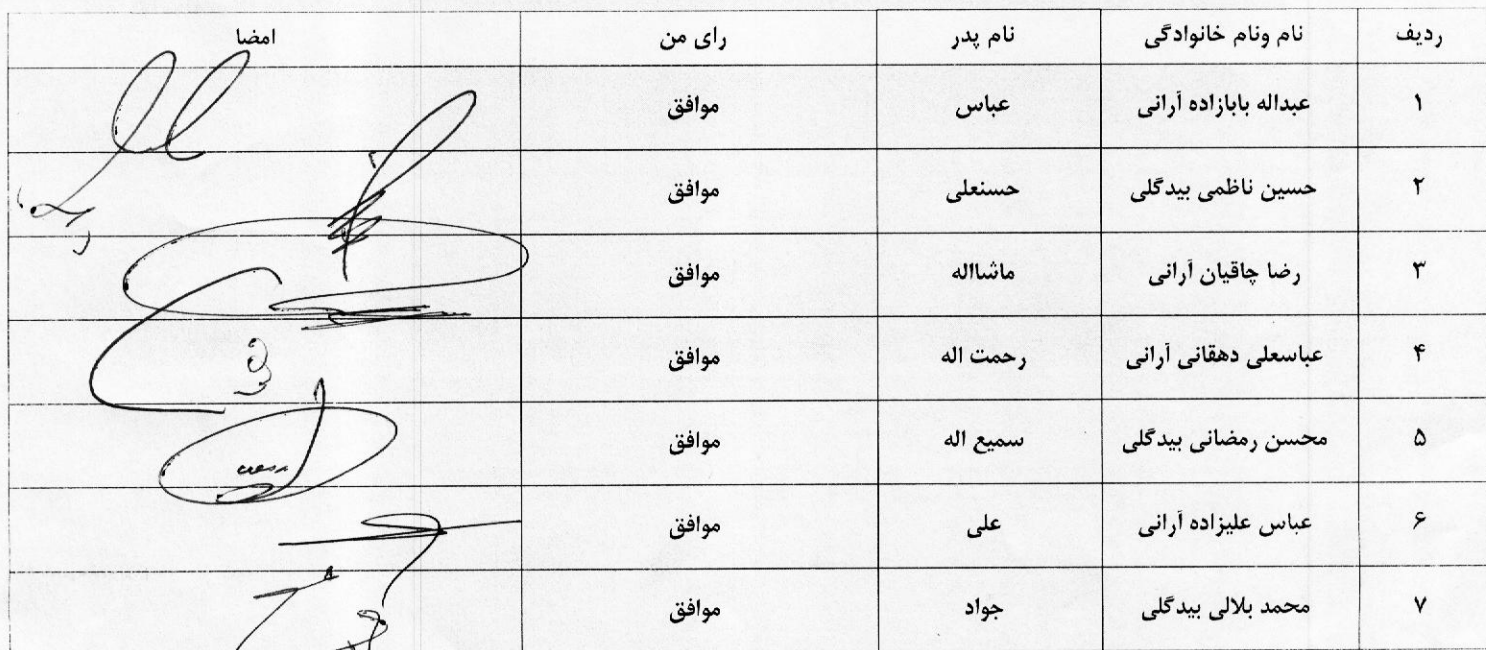 ردیف نام ونام خانوادگی نام پدر رای من امضا
۱ عبداله بابازاده آرانی عباس موافق
۲ حسین ناظمی بیدگلی حسنعلی موافق
۳ رضا چاقیان آرانی ماشااله موافق
۴ عباسعلی دهقانی آرانی رحمت اله موافق
۵ محسن رمضانی بیدگلی سمیع اله موافق
۶ عباس علیزاده آرانی علی موافق
۷ محمد بلالی بیدگلی جواد موافق